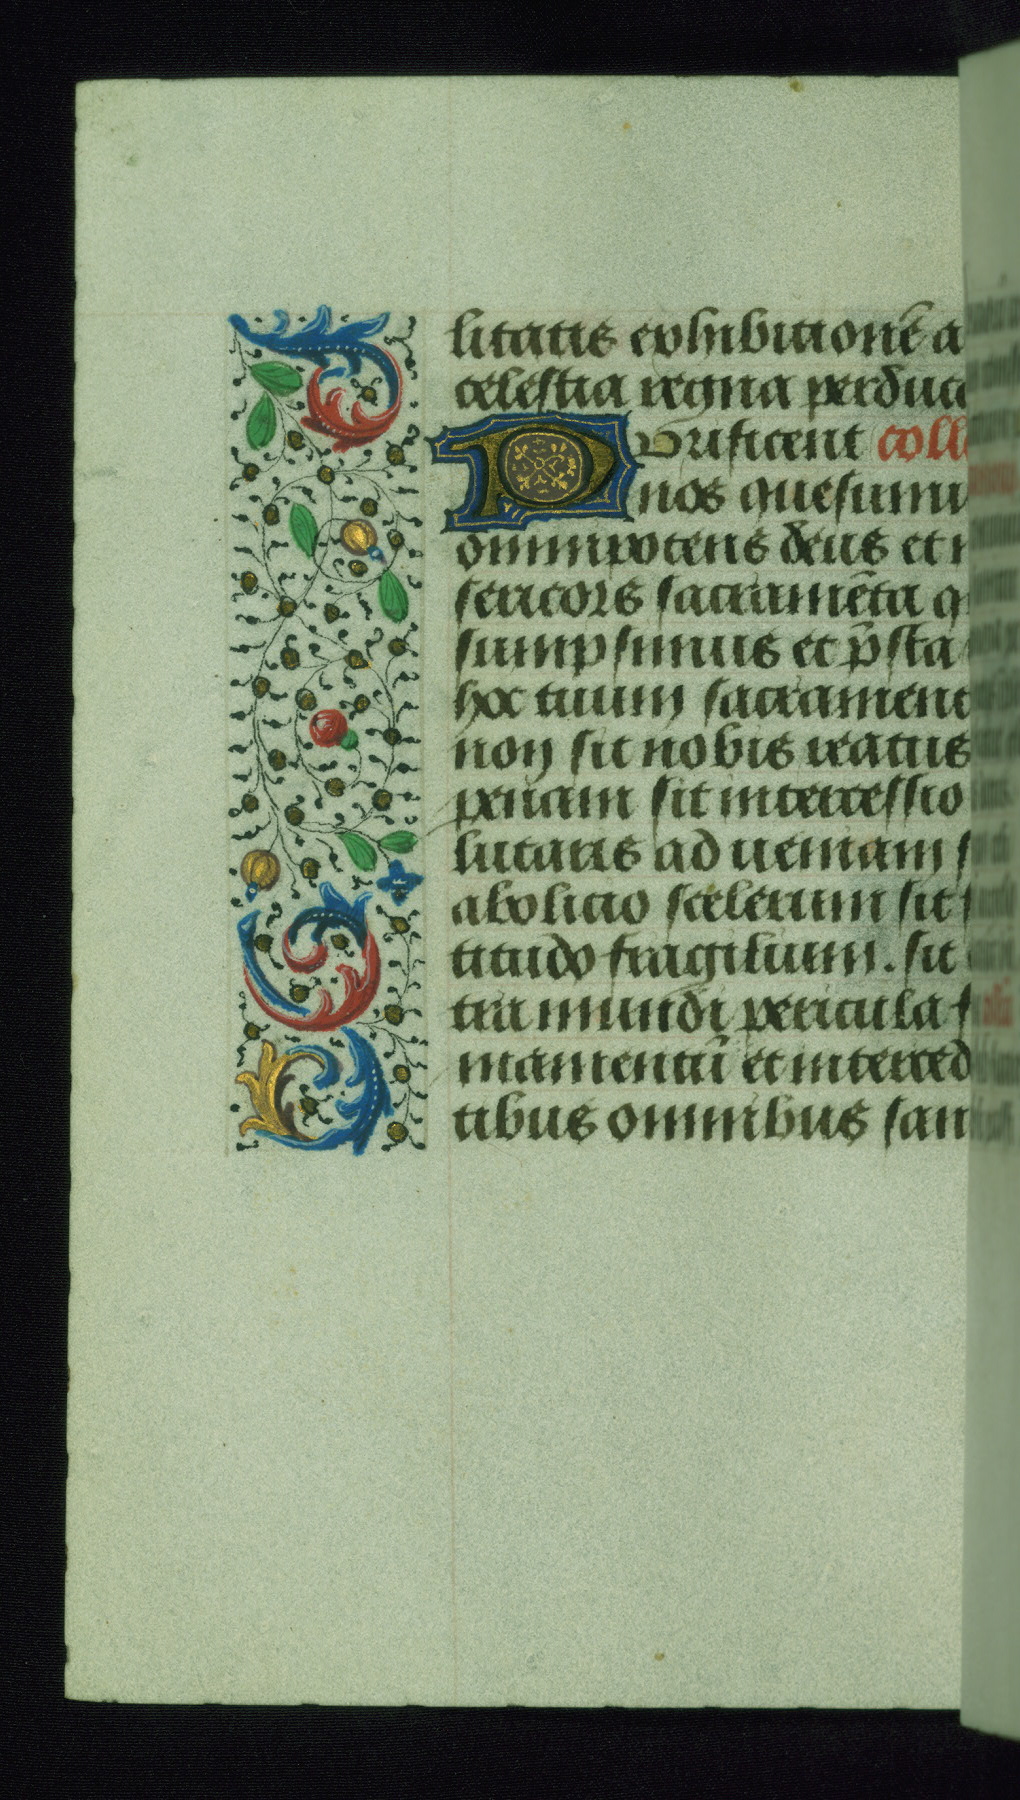 litatis exhibitionē a
celestia regna perduc
Purificent coll
nos quesumu
omnipotens deus et
sericors sacramēta q
sumpsimus et p̄sta
hoc tuum sacrament
non sit nobis reatus
penam sit intercessio
lutaris ad veniam s
abolicio scelerum sit
titudo fragilium. sit
tra mundi pericula f
mamentū et interced
tibus omnibus san